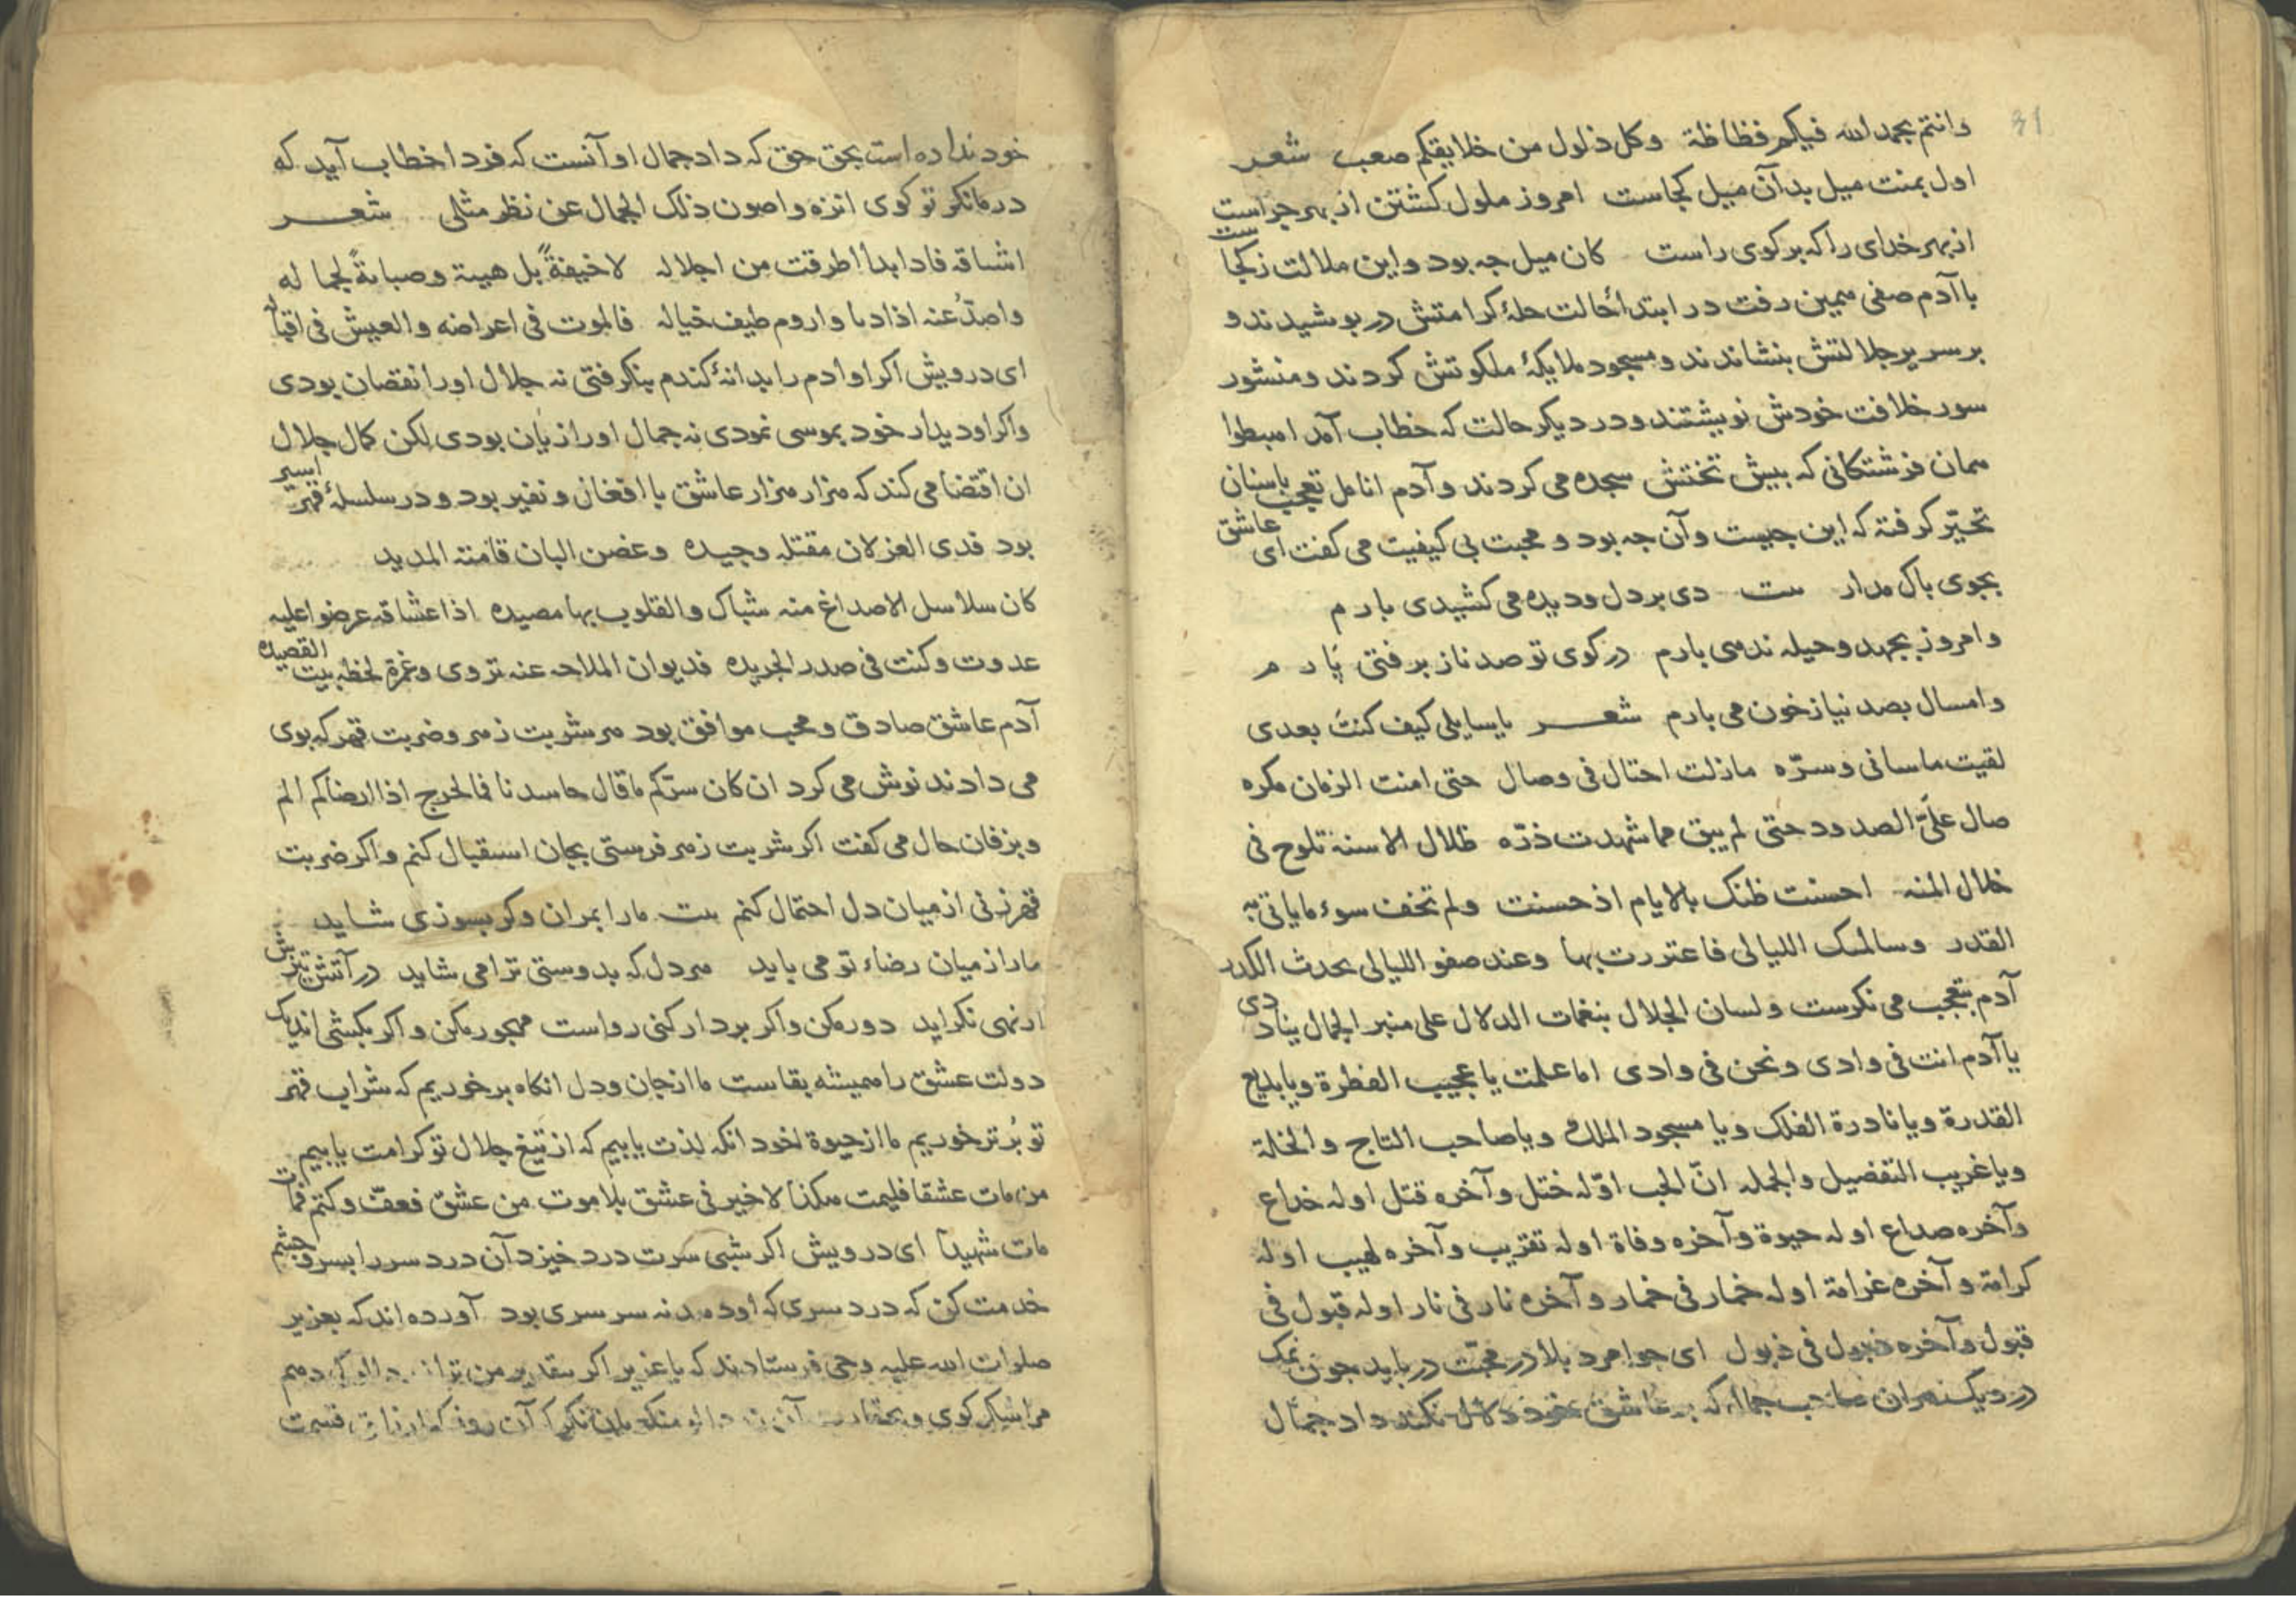 31
وانتم بحمد الله فیکم فظاظة وکل ذلول من خلایقکم صعب شعر
اول بمنت میل بدآن میل کجاست امروز ملول کشتن از بهر جراست
از بهر خدای را که برکوی راست کان میل جه بود واین ملالت زکجا ست
با آدم صفی همین رفت در ابتداء حالت حلهٔ کرامتش در بوشیدند و
بر سریر جلالتش بنشاندند و مسجود ملایکهٔ ملکوتش کردند و منشور
سور خلافت خودش نوبشتند ودر دیکر حالت که خطاب آمد اهبطوا
همان فرشتکانی که بیش تختش سجده می کردند و آدم انامل تعجب باسنان
تحیّر کرفته که این جیست وآن جه بود و محبت بی کیفیت می کفت ای عاشق
بجوی باک مدار بیت دی بر دل ودیده می کشیدی بارم
وامروز بجهد وحیله ندهی بارم در کوی تو صد ناز برفتی پارم
وامسال بصد نیاز خون می بارم شعر یا سایلی کیف کنت بعدی
لقیت ما سانی وسرّه مازلت احتال فی وصال حتی امنت الزمان مکره
صال علیّ الصدود حتی لم یبق مما شهدت ذرّه ظلال الاسنة تلوح فی
خلال المنه احسنت ظنک بالایام اذ حسنت ولم تخف سوء ما یاتی به
القدر وسالمتک اللیالی فاغتررت بها وعند صفو اللیالی یحدث الکدر
آدم بتعجب می نکرست ولسان الجلال بنغمات الدلال علی منبر الجمال ینادی
یا آدم انت فی وادی ونحن فی وادی اما علمت یا عجیب الفطرة ویا بدیع
القدرة ویا نادرة الفلک ویا مسجود الملک ویا صاحب التاج والخلة
ویا غریب التفضیل والجمله انّ الحب اوّله ختل وآخره قتل اوله خداع
وآخره صداع اوله حیوة وآخره وفاة اوله تقریب وآخره لهیب اوله
کرامة وآخره غرامة اوله خمار فی خمار وآخره نار فی نار اوله قبول فی
قبول وآخره ذبول فی ذبول ای جوامرد بلا در محبّت در باید جون نمک
در دیک هران صاحب جمال که بر عاشق خود دلال نکند داد جمال
خود نداده است بحق حق که داد جمال او آنست که فردا خطاب آید که
در ما نکر تو کوی انزه واصون ذلک الجمال عن نظر مثلی شعر
اشتاقه فاذا بدا اطرقت من اجلاله لا خیفةً بل هیبة وصیانةً لجماله
واصدّ عنه اذا دنا واروم طیف خیاله فالموت فی اعراضه والعیش فی اقباله
ای درویش اکر او ادم را بدانهٔ کندم بنکرفتی نه جلال اورا نقصان بودی
واکر او دیدار خود بموسی نمودی نه جمال اورا زیان بودی لکن کمال جلال
ان اقتضا می کند که هزار هزار عاشق با افغان ونفیر بود ودر سلسلهٔ قهر اسیر
بود فدی الغزلان مقتله وجیده وغصن البان قامته المدید
کان سلاسل الاصداغ منه شباک والقلوب بها مصیده اذا عشاقه عرضوا علیه
غدوت وکنت فی صدر الجریده فدیوان الملاحه عنه تروی وغمزة لحظه بیت القصیده
آدم عاشق صادق ومحب موافق بود هر شربت زهر وضربت قهر که بوی
می دادند نوش می کرد ان کان سرّکم ما قال حاسدنا فما لحرج اذا ارضاکم الم
وبزفان حال می کفت اکر شربت زهر فرستی بجان استقبال کنم واکر ضربت
قهر زنی از میان دل احتمال کنم بیت مارا بمران وکر بسوزی شاید
مارا زمیان رضاء تو می باید هر دل که بدوستی ترا می شاید در آتش تیزش
ار نهی نکراید دور مکن واکر بر دار کنی رواست مهجور مکن واکر بکشی اندیک
دولت عشق را همیشه بقاست ما از جان ودل انکاه برخوریم که شراب قهر
تو بُرتر خوریم ما از حیوة لخود انکه لذت یابیم که از تیغ جلال تو کرامت یابیم
من مات عشقا فلیمت هکذا لا خیر فی عشق بلا موت من عشق فعفّ وکتم فمات
مات شهیداً ای درویش اکر شبی سرت درد خیزد آن درد سر را بسر وچشم
خدمت کن که درد سری که او دهد نه سرسری بود آورده اند که بعزیر
صلوات الله علیه وحی فرستادند که یا عزیر اکر بتقدیر من ترا دهم
مرا نیکر کوی وبحقارت آن منکر بان نکر که آن روز که ارزاق قسمت